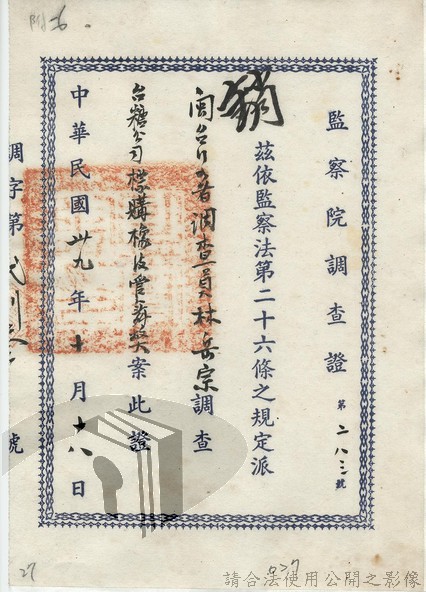 附
監察院調查證
第二八三號
銷
茲依監察法第二十六條之規定派
閩台行署調查員林岳宗調查
台糖公司標購橡皮管弊案此證
中華民國卅九年十月十八日
調字第 號
27
027
請合法使用公開之影像